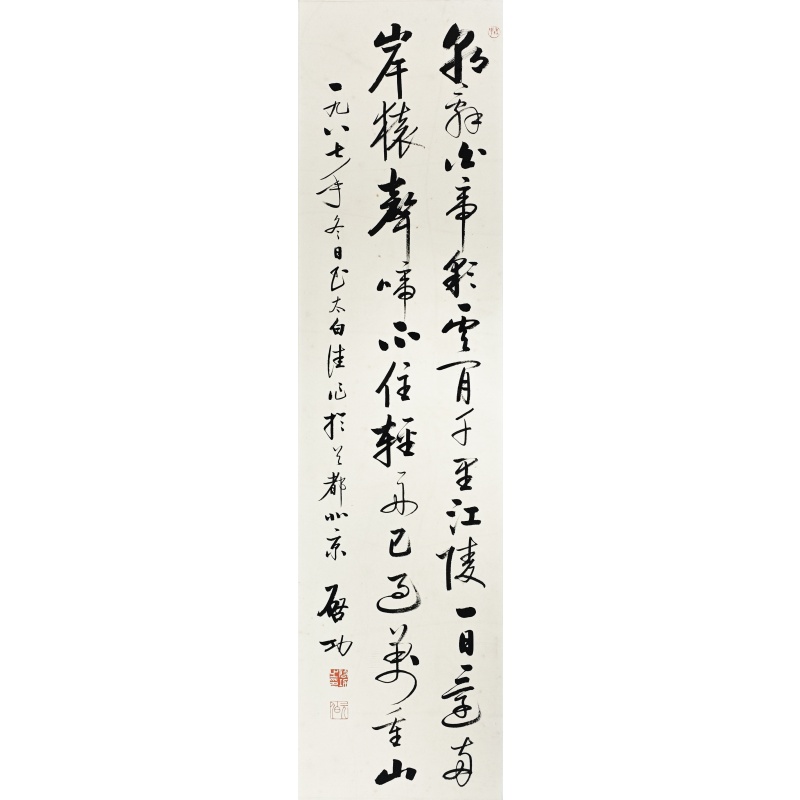 朝辭白帝彩雲間千里江陵一日還兩
岸猿聲啼不住輕舟已過萬重山
一九八七年冬日書太白佳作於首都北京 啓功